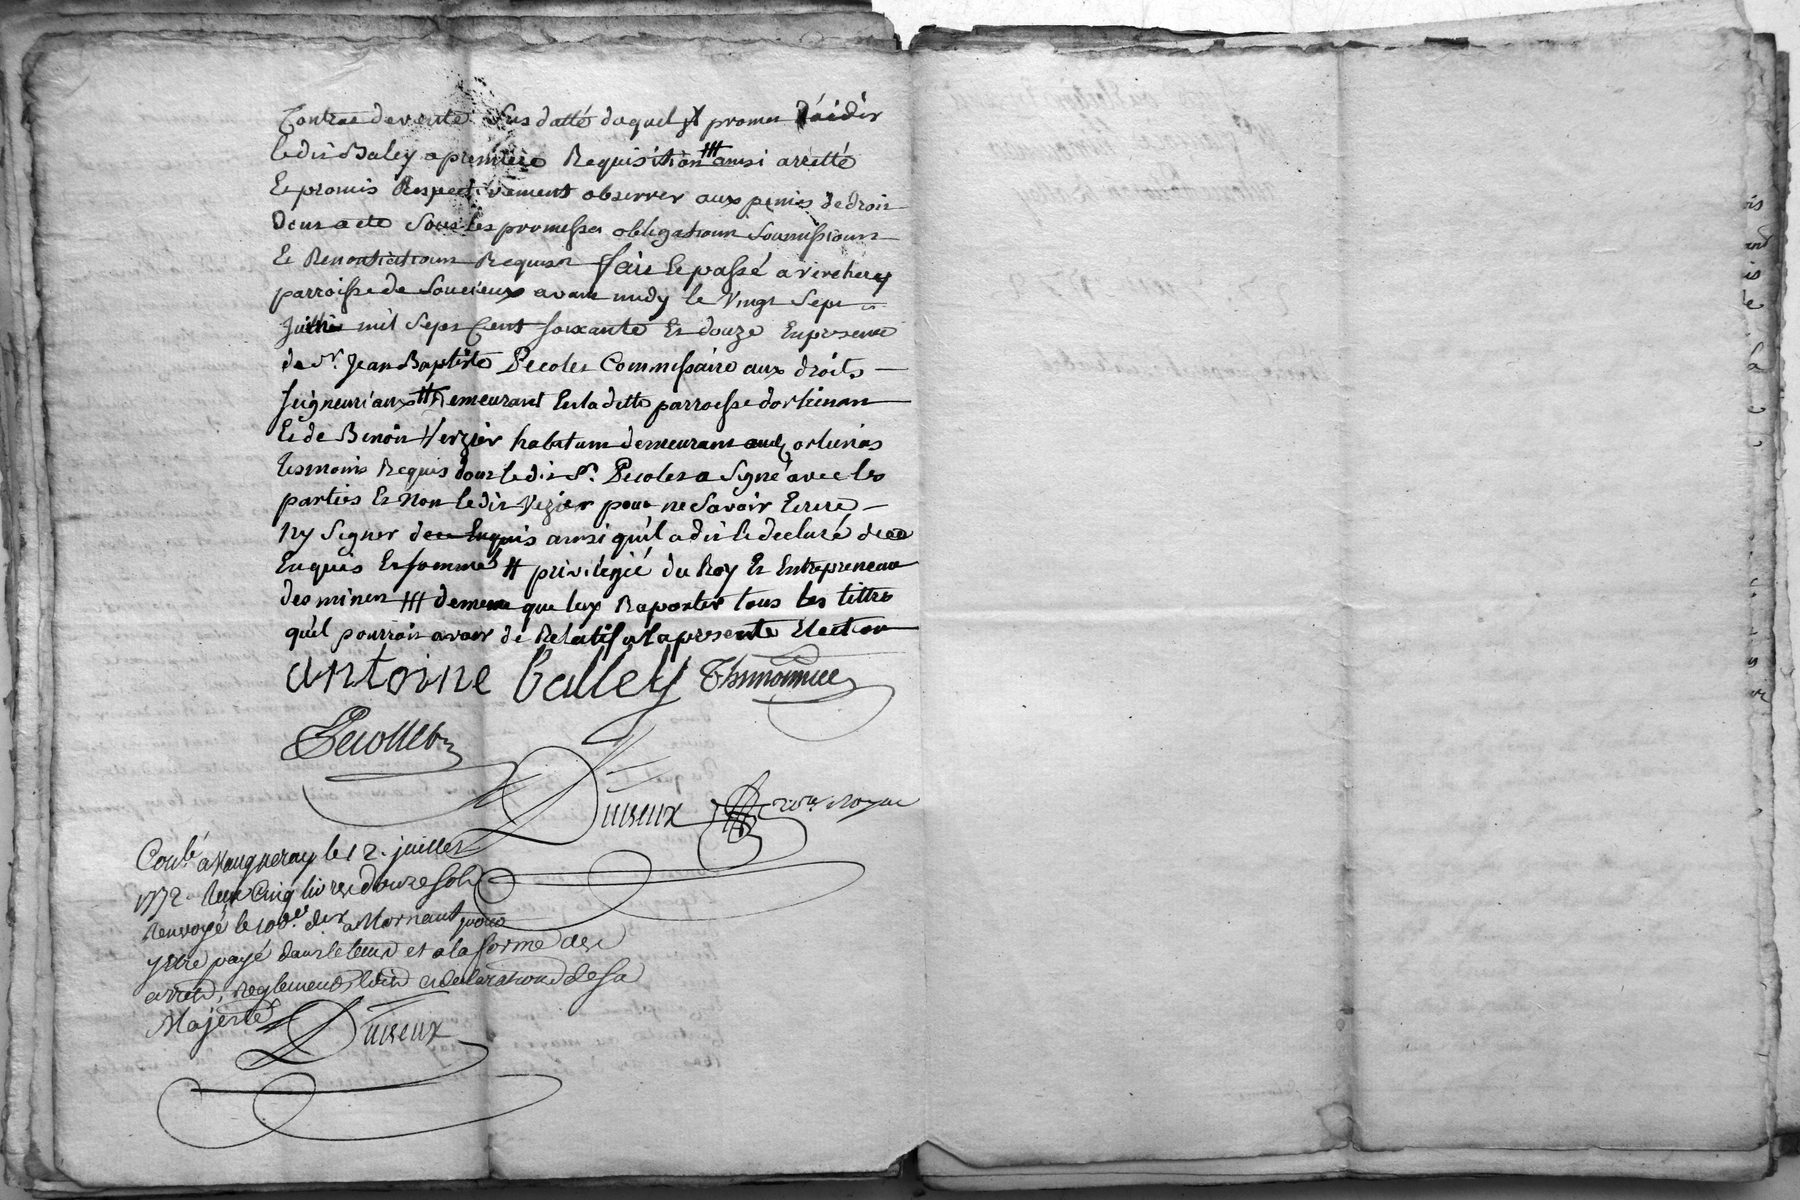 Contrat de vente Sus datté duquel Il promet d'aidér
ledit Baley a premiere Requisition ### ainsi arretté
Et promis Respectivement observer aux peines de droit
Dont acte Sous les promesses obligations Soumissions
Et Renontiations Requises fait Et passé a verchery
parroisse de Soucieux avant midy le Vingt Sept
Juillet mil Sept Cent soixante Et douze En presence
de Sr. Jean Baptiste Pecolet Commissaire aux droits
seigneuriaux ## Demeurant En laditte parroisse d'orlienas
Et de Benoit Verzier habitant demeurant audt orlienas
Tesmoins Requis dont ledit Sr. Pecolet a Signé avec les
parties Et Non ledit Vezier pour ne Savoir Ecrire
Ny Signer de ce Enquis ainsi qu'il a dit Et declaré de ce
Enquis Et sommé ## privilégié du Roy Et Entrepreneur
des mines ### de meme que luy Raporter tous les tittres
qu'il pourroit avoir de Relatif a la presente Election
antoine balley Thimonnier
Pecollet
Duiseux nore royal
Conlé a Vaugneray le 12. juillet
1772 Reçu Cinq livres douze sols
Renvoyé le 100e. der a Mornant pour
y etre payé dans le tems et a la forme des
arrets, reglements Edits et declarations de Sa
Majesté
Duiseux